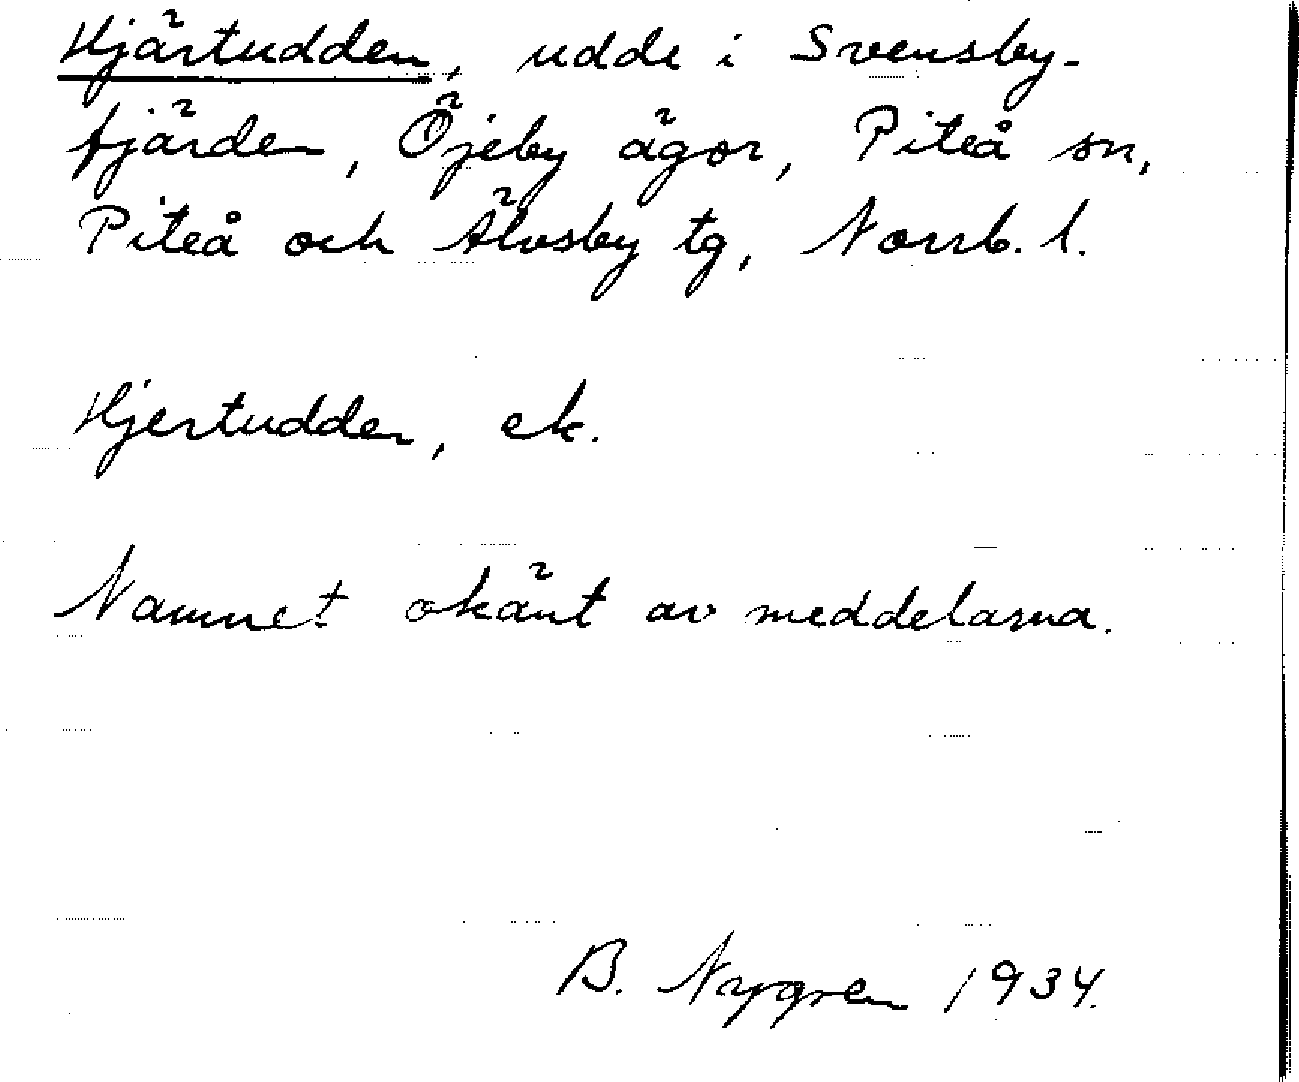 Hjärtudden, udde i Svensby-
fjärden, Öjeby ägor, Piteå sn,
Piteå och Älvsby tg, Norrb. l.
Hjertudden, ek.
Namnet okänt av meddelarna.
B. Nygren 1934.